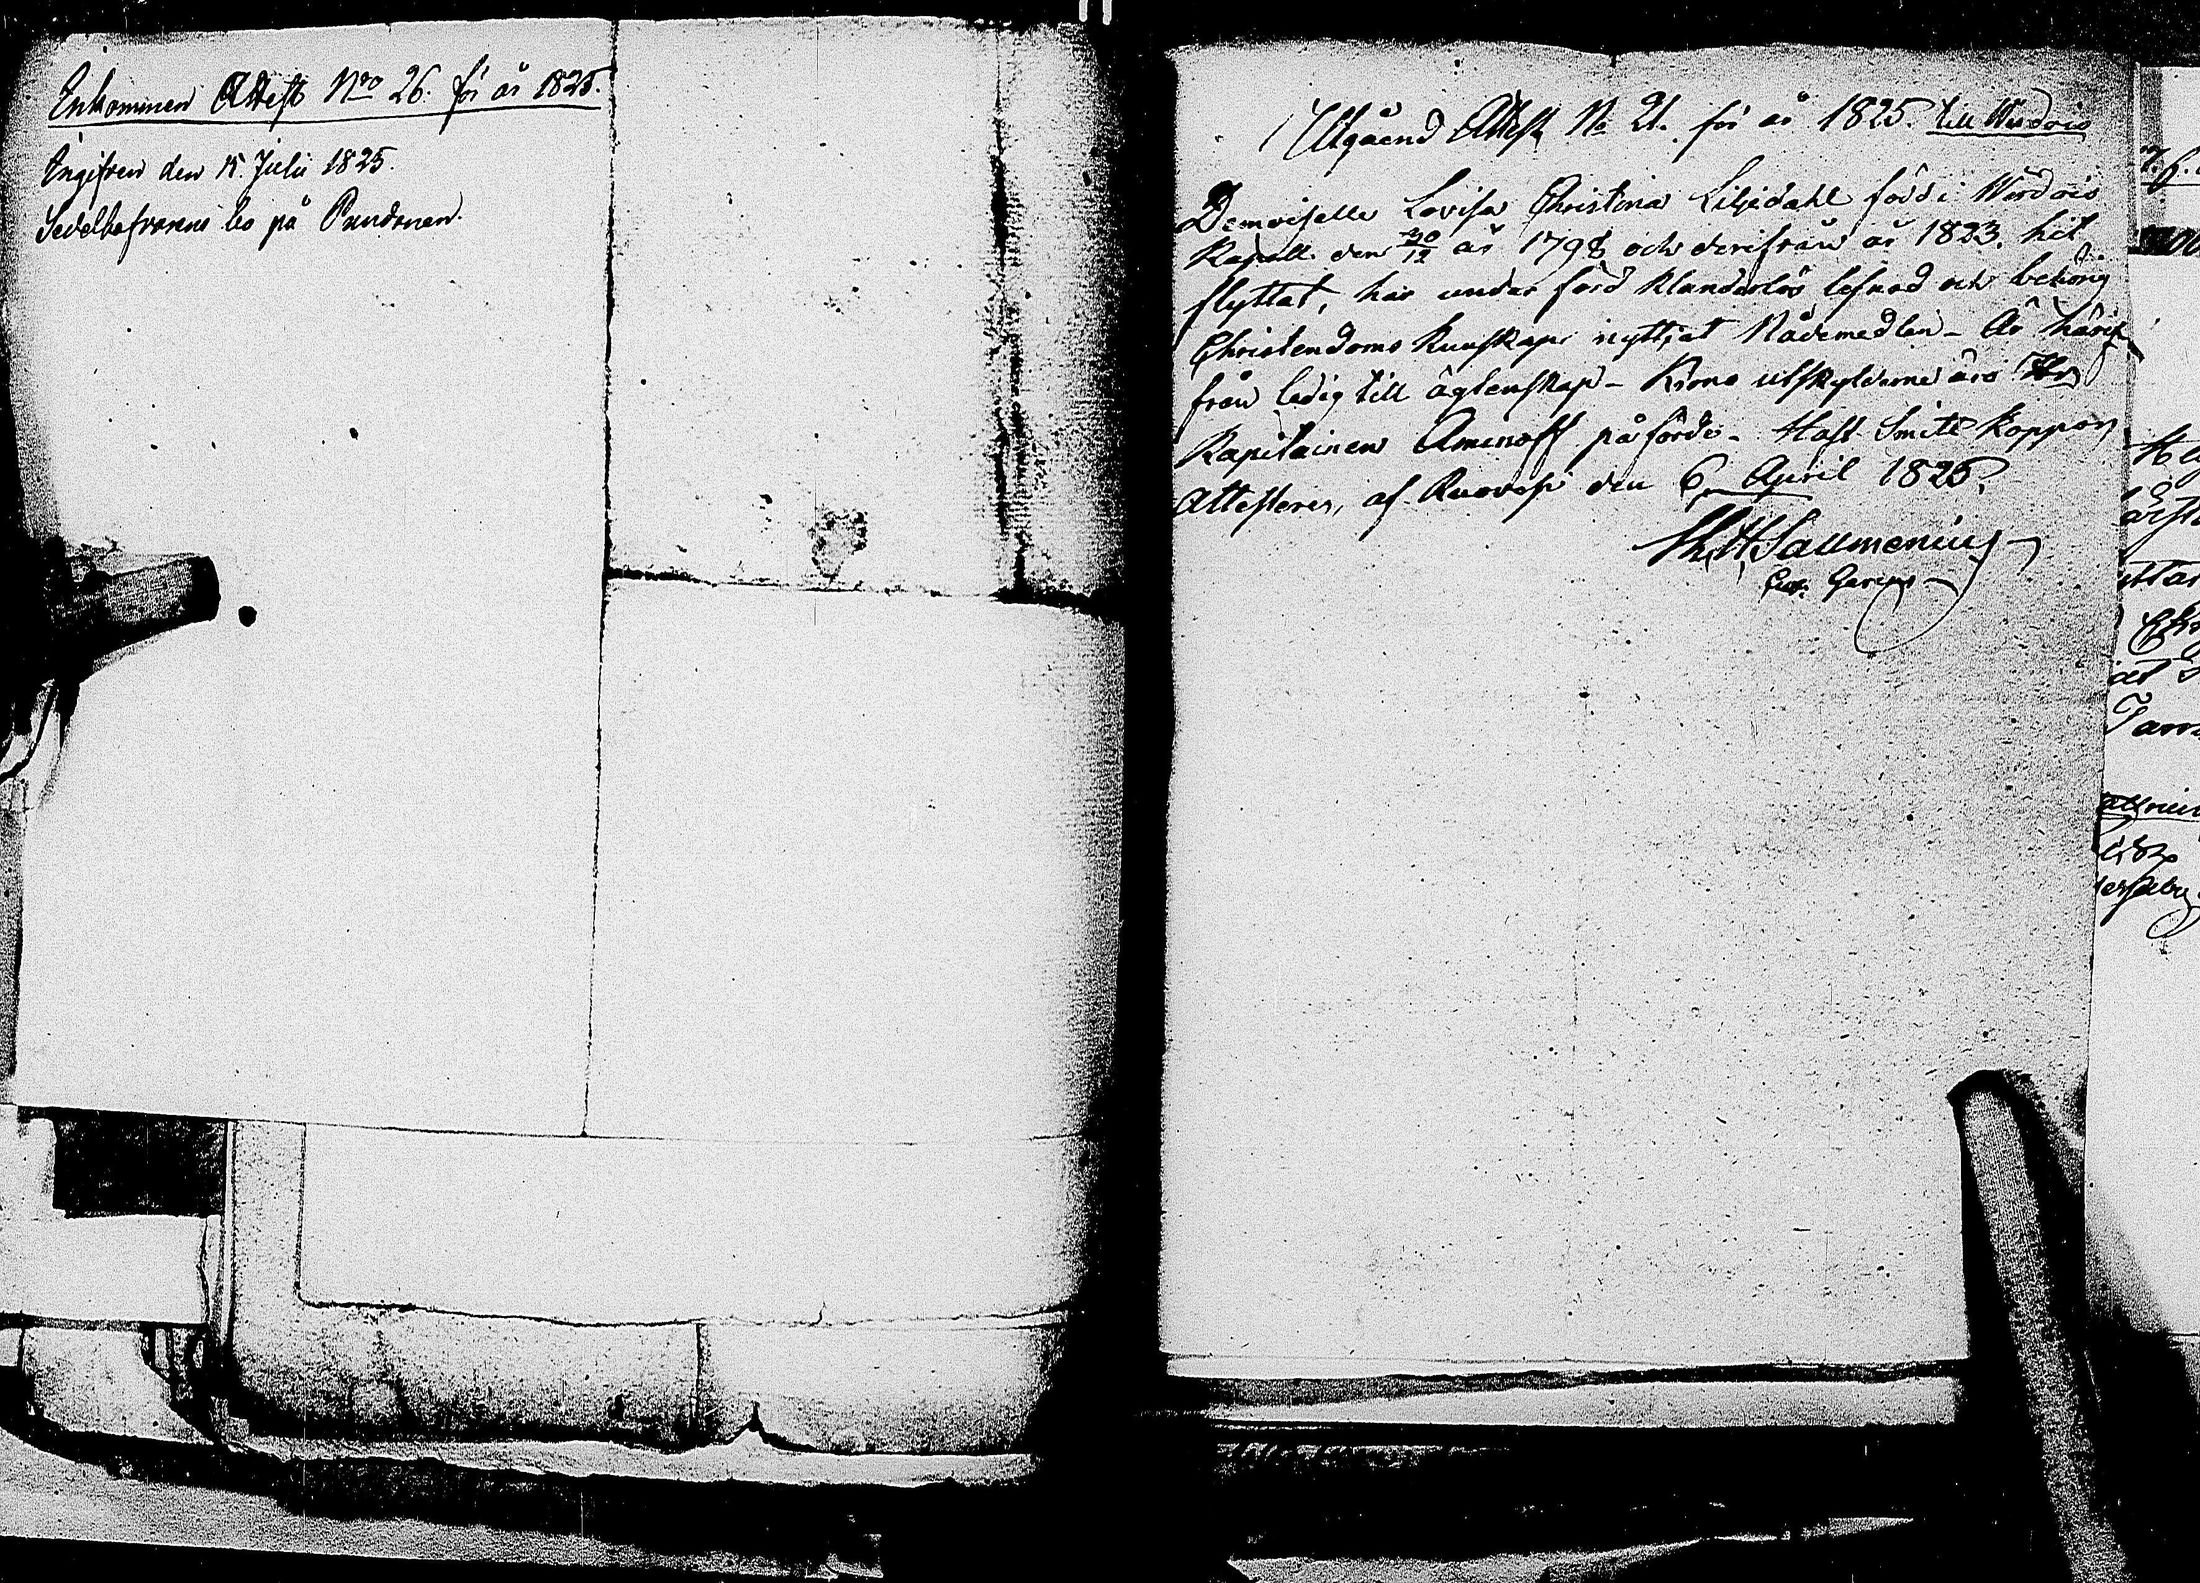 Inkommen Attest Nro 26. för år 1825.
Ingifven den 15. Julii 1825.
Sedelhafvarens bo på Pundonen.
Utgående Attest No 21. för år 1825. till
Demoiselle Lovisa Christina Liljedahl född i
Kapell den 30/12 år 1798 och derifrån år 1823. hit
flyttat, har under förd klanderlös lefnad och behörig
Christendoms kunskap nyttjat Nådemedlen - Är härif
från ledig till ägtenskap - Krono utskylderne äro Hr
Kapitainen Aminoff påförde - Haft Smitt koppor
Attesteras, af Ruovesi den 6 April 1825.
Salmenius